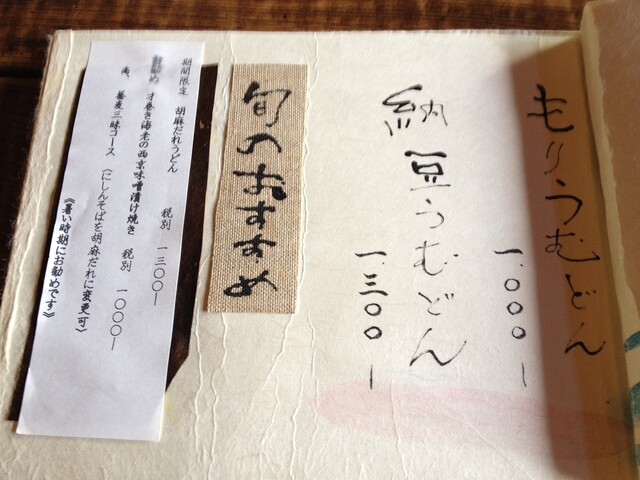 もりうむどん
一、〇〇〇ー
納豆うむどん
一、三〇〇ー
旬のおすすめ
期間限定 胡麻だれうどん 税別 一三〇〇ー
才巻き海老の西京味噌漬け焼き 税別 一〇〇〇ー
滝、蕎麦三昧コース (にしんそばを胡麻だれに変更可)
《暑い時期にお勧めです》